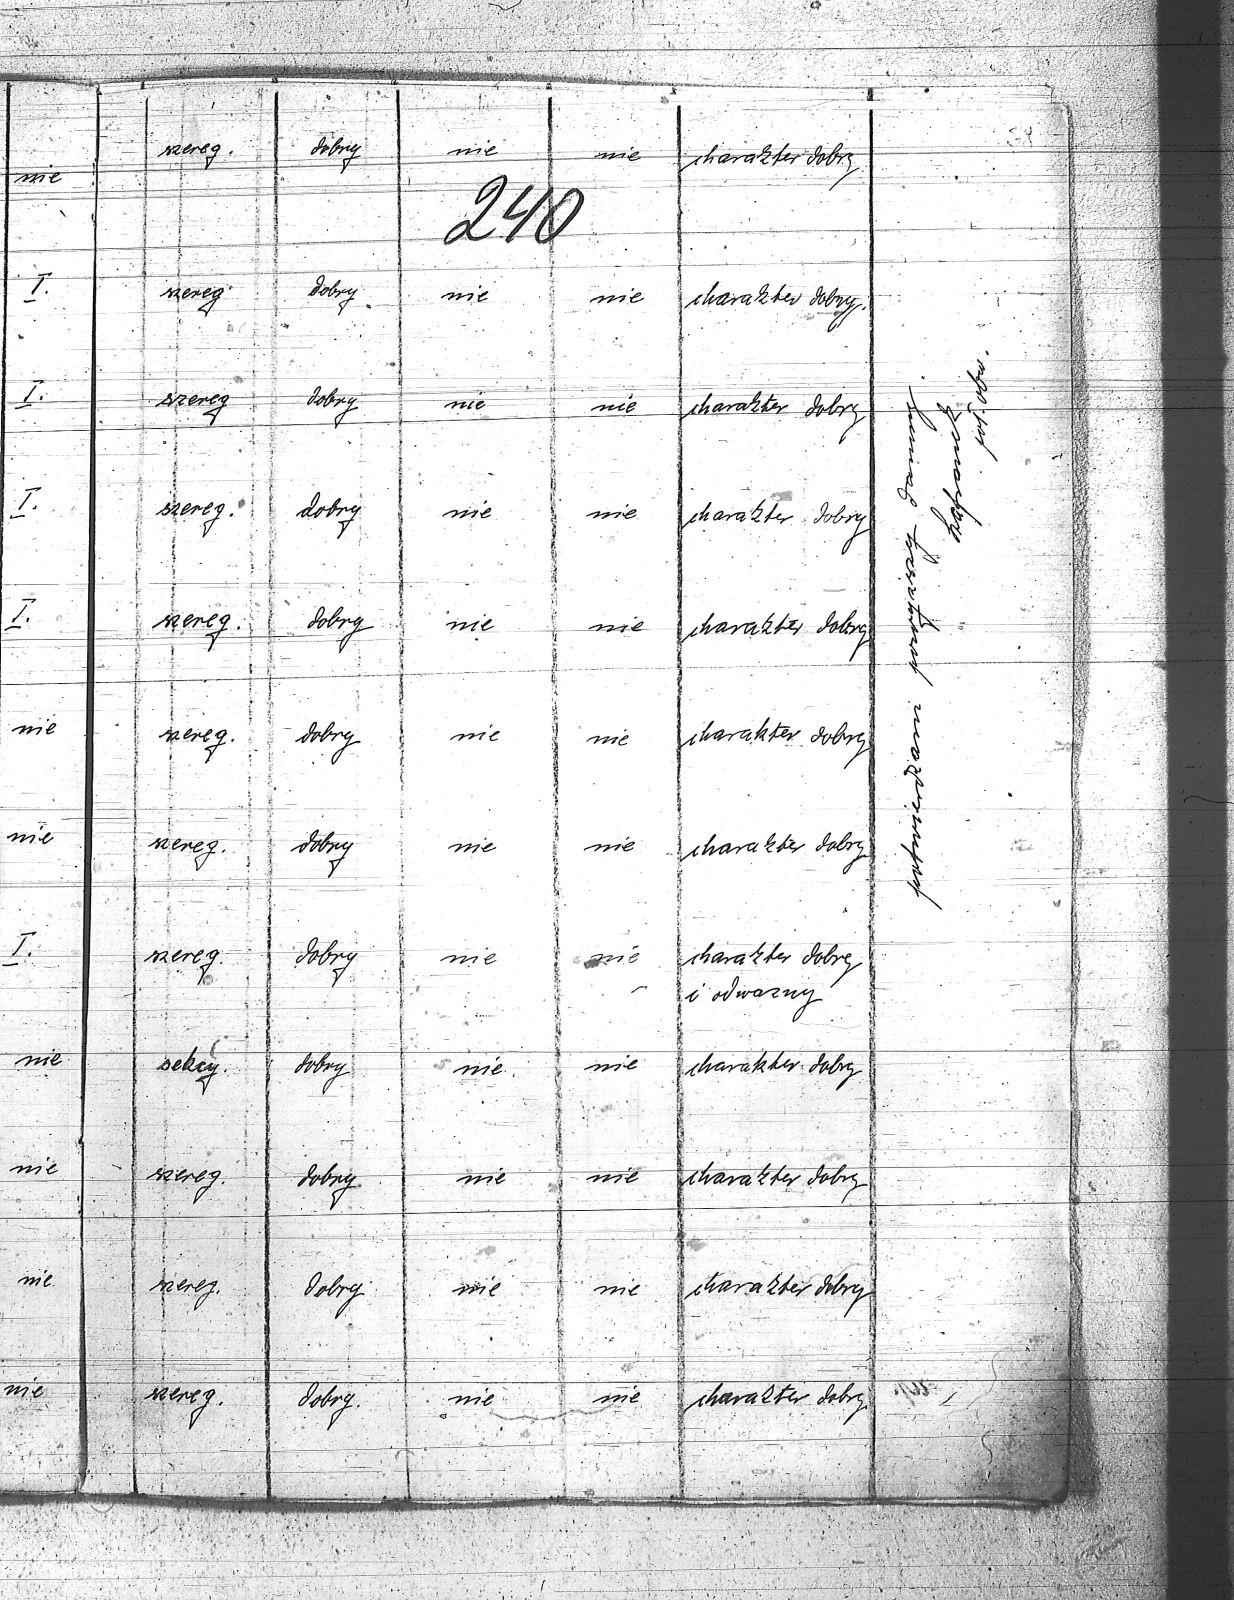 nie szereg. dobry nie nie charakter dobry
240
I. szereg dobry nie nie charakter dobry.
I. szereg dobry nie nie charakter dobry
I. szereg. dobry nie nie charakter dobry
I. szereg. dobry nie nie charakter dobry
nie szereg. dobry nie nie charakter dobry
nie szereg. dobry nie nie charakter dobry
I. szereg. dobry nie nie charakter dobry
i odwazny
nie sekcy. dobry nie nie charakter dobry
nie szereg. dobry nie nie charakter dobry
nie szereg. dobry nie nie charakter dobry
nie szereg. dobry. nie nie charakter dobry